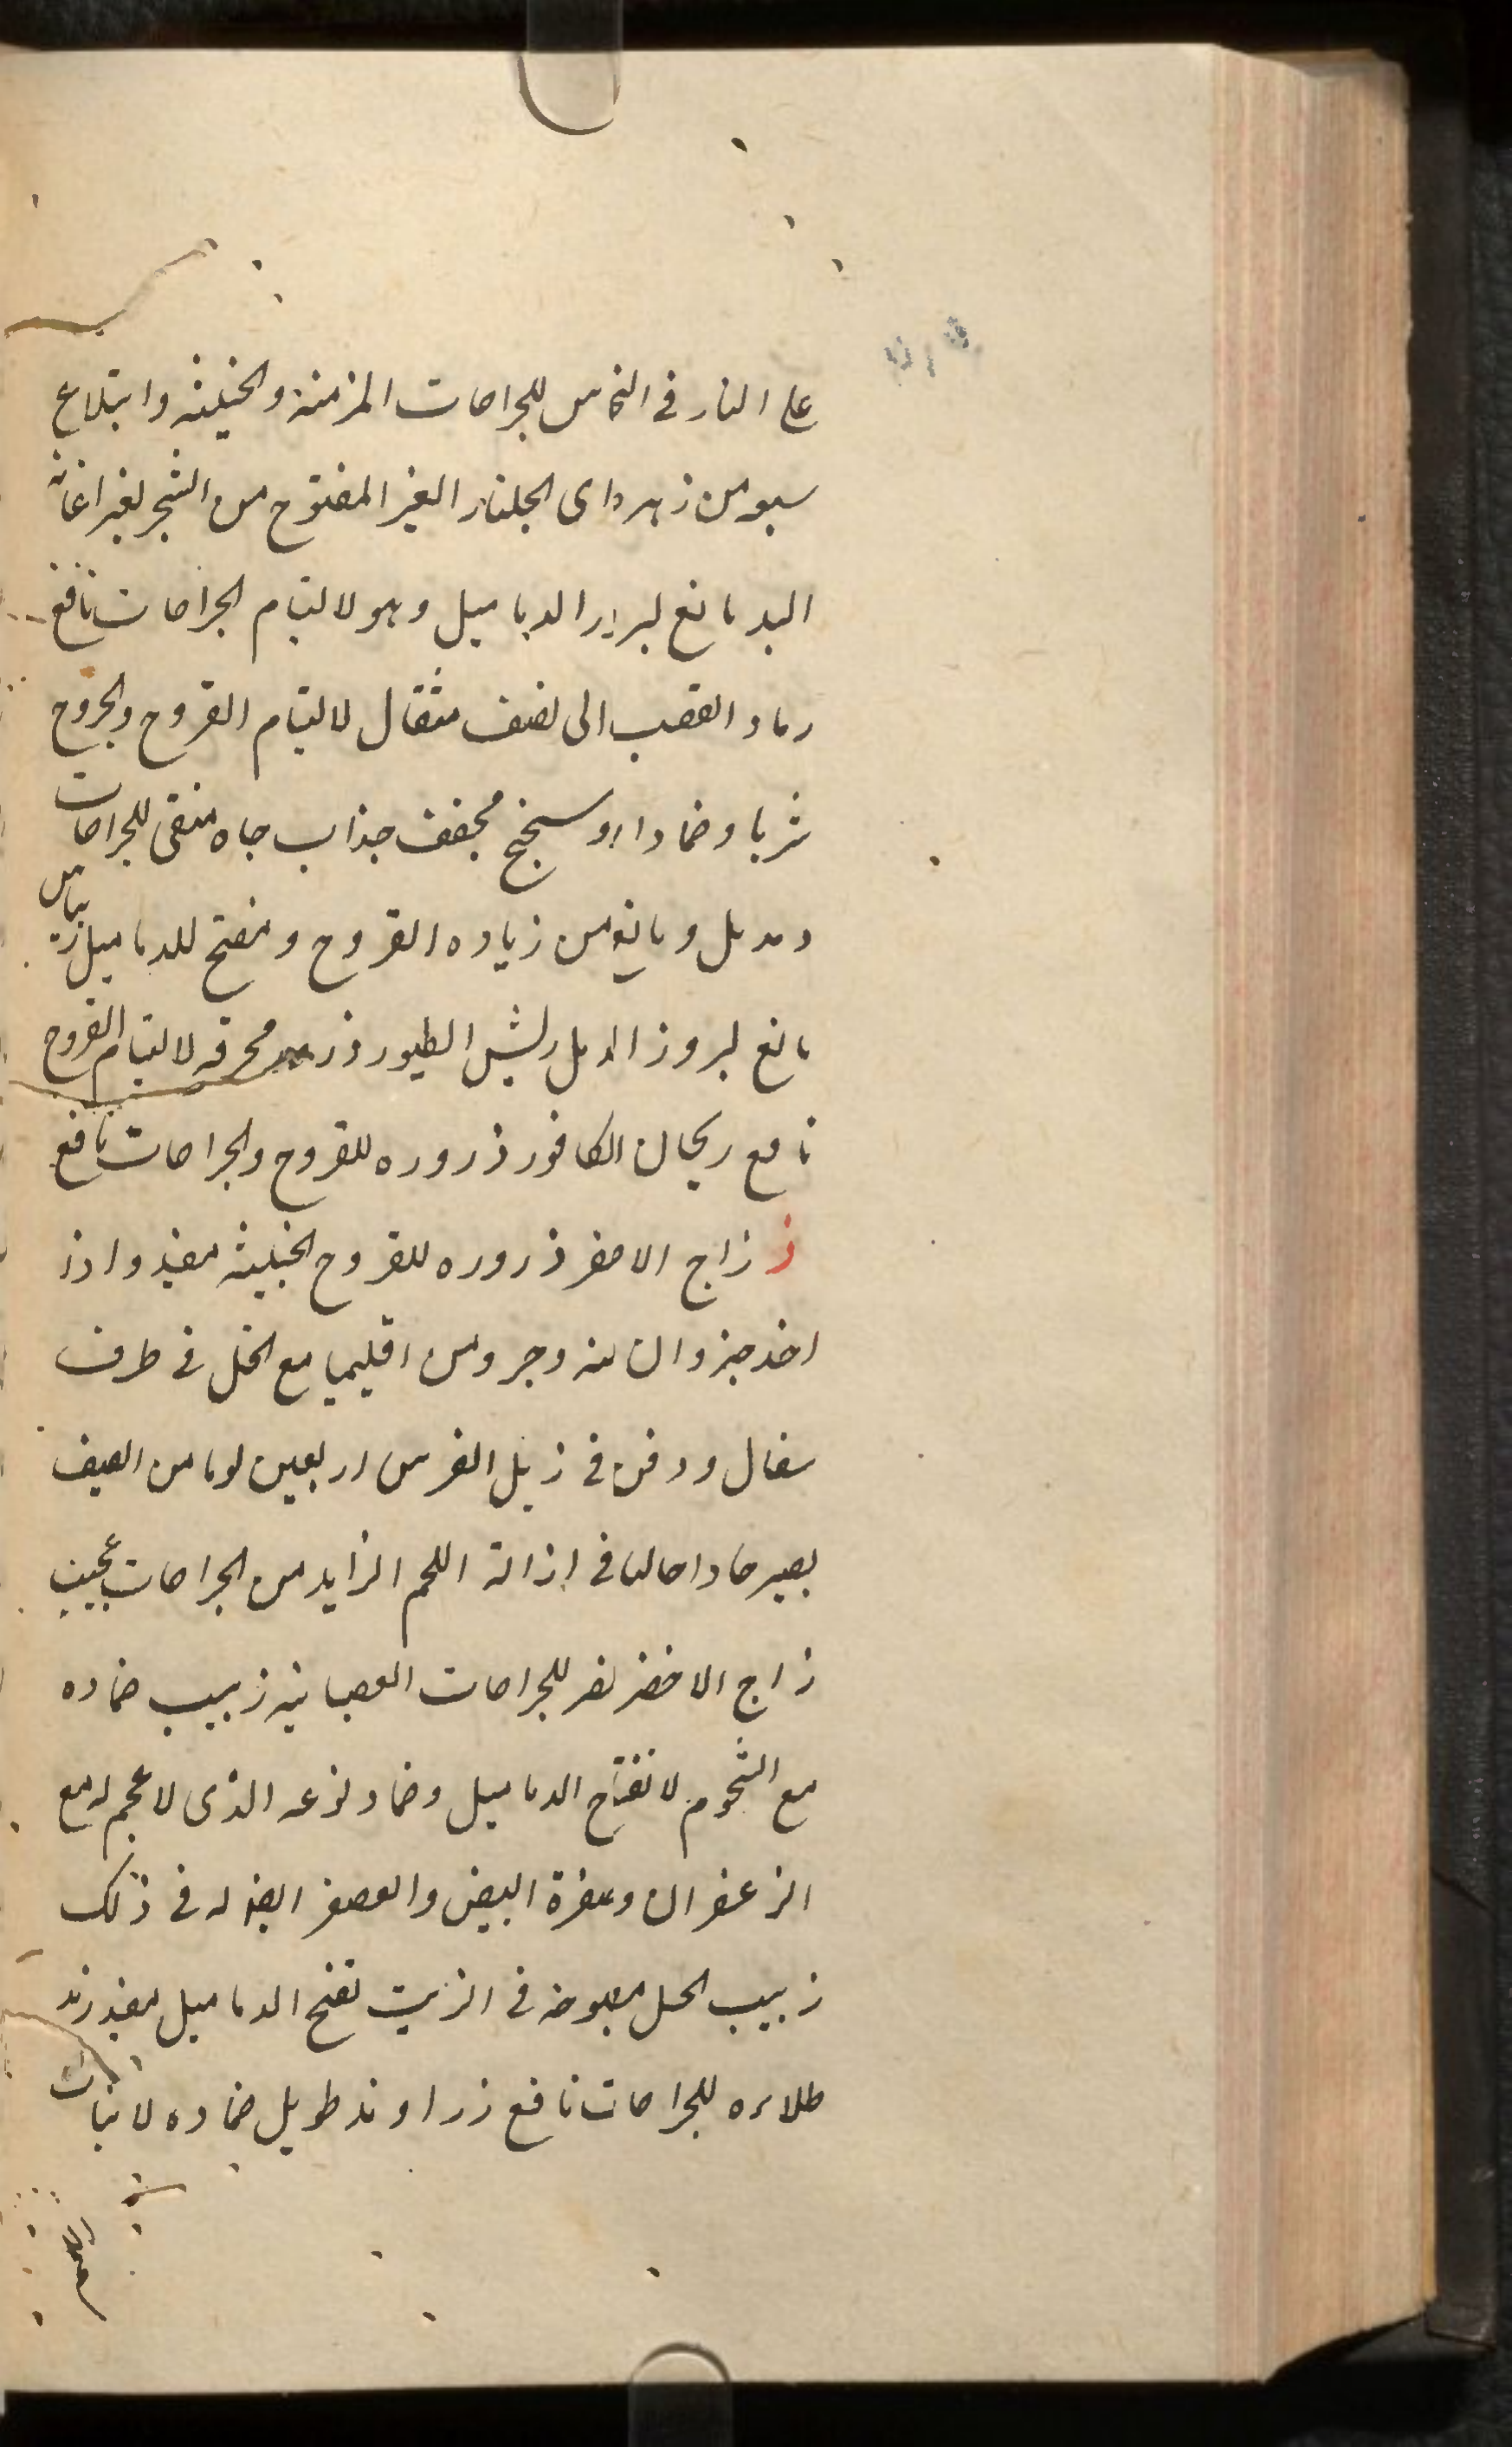 على النار فى النحاس للجراحات المزمنة والخبيثه وابتلاع
سبع من زهره اى الجلنار الغير المفتوح من الشجر لغير اعانة
اليد مانع لبروز الدماميل وهو لالتيام الجراحات نافع
رماد القصب الى نصف مثقال لالتيام القروح والجروح
شربا وضمادا روسختج مجفف جذاب جاه منقى للجراحات
ومدمل ومانع من زياده القروح ومفتح للدماميل ريباس
مانع لبروز الدمل ريش الطيور ذر محرقه لالتيام القروح
نافع ريحان الكافور ذروره للقروح والجراحات نافع
ز زاج الاصفر ذروره للقروح الخبيثه مفيد واذا
اخذ جزوان منه وجزو من اقليميا مع الخل فى ظرف
سفال ودفن فى زبل الفرس اربعين يوما من الصيف
يصير حادا حالا فى ازالة اللحم الزايد من الجراحات عجيب
زاج الاخضر مضر للجراحات العصبانيه زبيب ضماده
مع الشحوم لانفتاح الدماميل وضماد نوعه الذى لا عجم له مع
الزعفران وصفرة البيض والعصفر ايضا له فى ذلك
زبيب الجبل ممضوغه فى الزيت تفتح الدماميل مفيد زبد
طلاءه للجراحات نافع زراوند طويل ضماده لانبات
اللحم